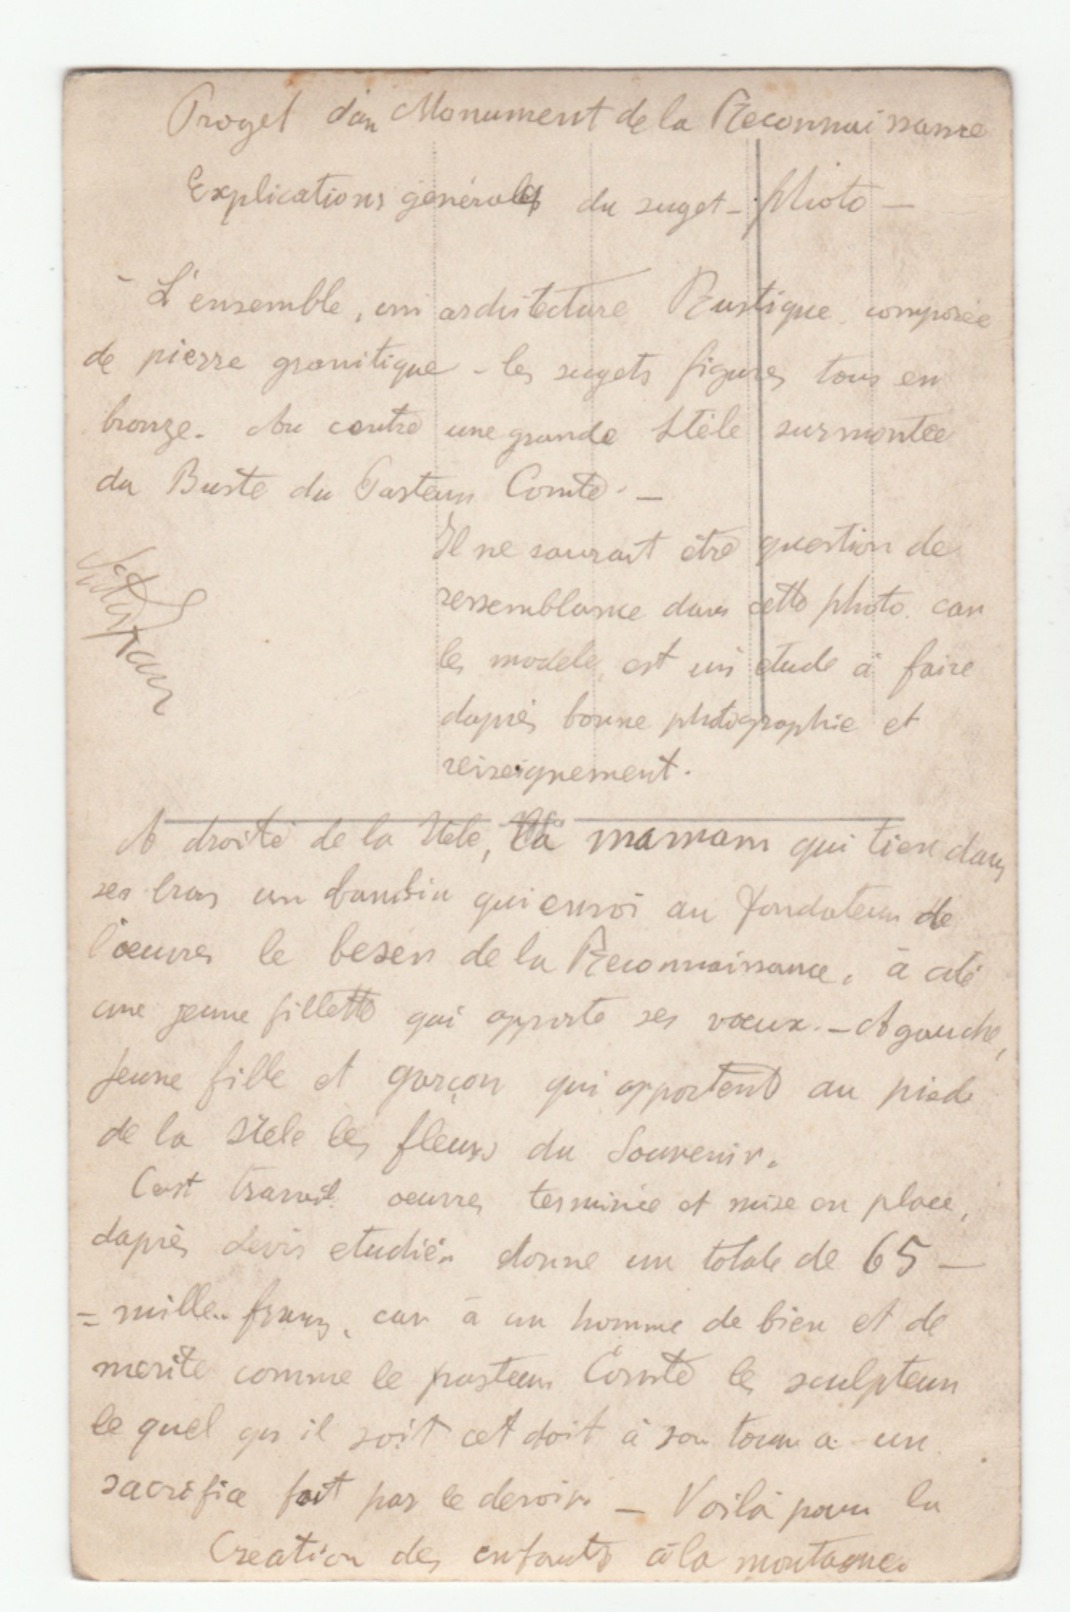 Proget d'un Monument de la Reconnaissance
Explications générales du suget - photo -
- L'ensemble, un architecture Rustique composée
de pierre granitique - les sugets figures tous en
bronze. Au centre une grande Stèle surmontée
du Buste du Pasteur Comte. -
Il ne saurait être question de
ressemblance dans cette photo. car
les modele est un étude à faire
daprès bonne photographie et
reiseignement.
A droite de la Stele, la maman qui tien dans
ses bras un bambin qui envoi au fondateur de
l'œuvres le beser de la Reconnaissance, à coté
une jeune fillette qui apporte ses vœux. - A gauche,
jeune fille et garçon qui apportent au pieds
de la Stele les fleurs du Souvenir.
Cest travail œuvres terminée et mise en place,
daprès devis etudier donne un totale de 65 -
= mille francs, car à un homme de bien et de
merite comme le pasteur Comte les sculpteur
le quel qu il soit cet doit à son tour a un
sacrifice fait par le devoir. - Voilà pour la
Creation des enfants à la montagne.